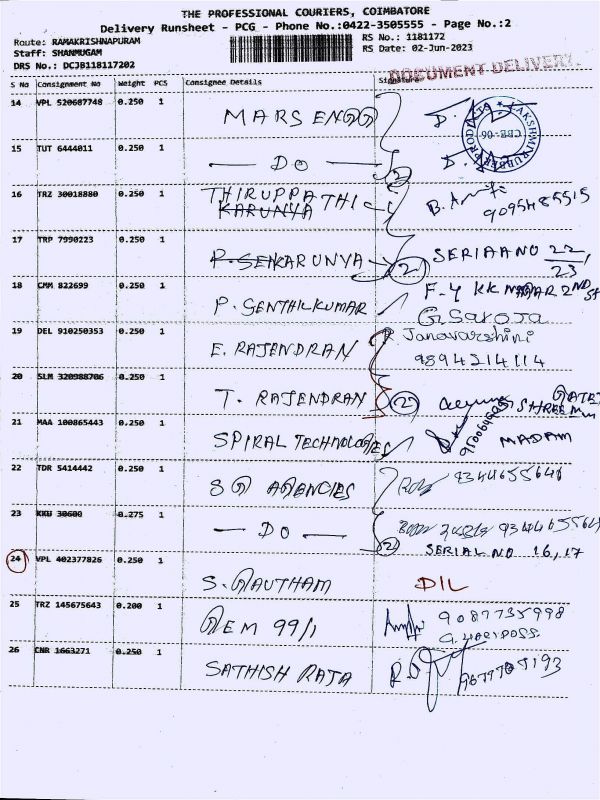 THE PROFESSIONAL COURIERS, COIMBATORE
Delivery Runsheet - PCG - Phone No.:0422-3505555 - Page No.:2
Route: RAMAKRISHNAPURAM RS No.: 1181172
Staff: SHANMUGAM RS Date: 02-Jun-2023
DRS No.: DCJB118117202
DOCUMENT DELIVERY
S No Consignment No Weight PCS Consignee Details Signature
14 VPL 520687748 0.250 1 MARS ENGG
LAKSHMI RUBBER PRODUCTS
CBE-06
15 TUT 6444011 0.250 1 DO 2
16 TRZ 30018880 0.250 1 THIRUPPATHI
KARUNYA 9095485515
17 TRP 7990223 0.250 1 KARUNYA 2 SERIAL NO 22,
23,
18 CMM 822699 0.250 1 P. SENTHILKUMAR F-4 KK NAGAR 2ND ST
G. Saroja
19 DEL 910250353 0.250 1 E. RAJENDRAN Janavarshini
9894214114
20 SLM 320988706 0.250 1 T. RAJENDRAN 2 GATE
21 MAA 100865443 0.250 1 SPIRAL TECHNOLOGIES MADAM
22 TDR 5414442 0.250 1 S G AGENCIES 9344655641
23 KKU 30600 0.275 1 DO 2
SERIAL NO 16, 17
24 VPL 402377826 0.250 1 S. GAUTHAM DIL
25 TRZ 145675643 0.200 1 GEM 99/1 9087735998
26 CNR 1663271 0.250 1 SATHISH RAJA